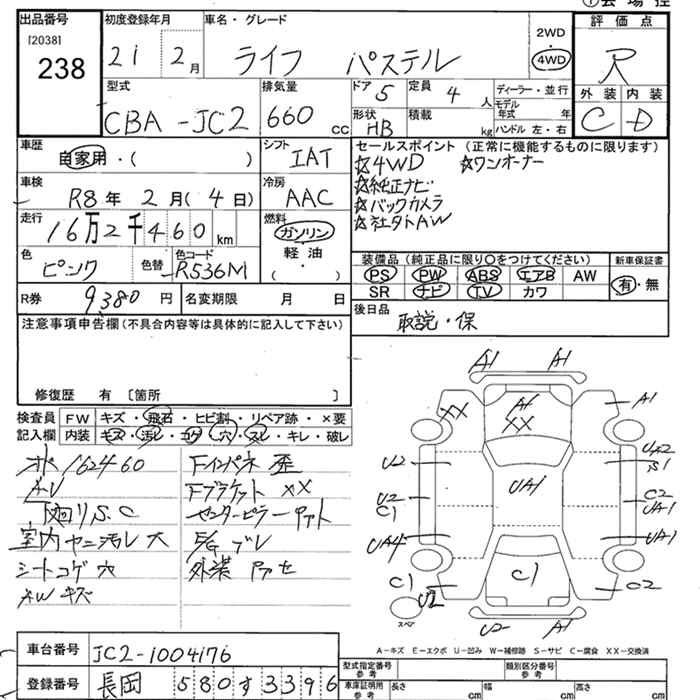 出品番号
[2038]
238
初度登録年月
21 2月
車名・グレード
ライフ パステル
2WD
・
4WD
評価点
R
外装 内装
C D
型式
CBA-JC2
排気量
660 cc
ドア 5
定員 4 人
形状 HB
積載 kg
ディーラー・並行
モデル年式 年
ハンドル 左・右
車歴
自家用・( )
シフト
IAT
車検
R8年 2月(4日)
冷房
AAC
走行
16万2千460 km
燃料
ガソリン
軽油
( )
色
ピンク
色替
色コード
R536M
R券 9380円
名変期限 月 日
セールスポイント (正常に機能するものに限ります)
☆4WD ☆ワンオーナー
☆純正ナビ
☆バックカメラ
☆社外AW
装備品 (純正品に限り○をつけてください)
新車保証書
PS PW ABS エアB AW
SR ナビ TV カワ
有・無
後日品
取説・保
注意事項申告欄(不具合内容等は具体的に記入して下さい)
修復歴 有 〔箇所 〕
検査員記入欄
FW キズ・飛石・ヒビ割・リペア跡・×要
内装 キズ・汚レ・コゲ・穴・スレ・キレ・破レ
162460
下廻りS.C
室内ヤニ汚レ大
シートコゲ穴
AWキズ
Fインパネ歪
Fブラケット XX
センターピラー
E/G ブレ
外装
A1 A1
XX A1 XX A1
U2 S1
U2 C1 UA1 C2 UA1
UA4 UA1
C1 U2 C1 C2
スペア
U2 A1
A-キズ E-エクボ U-凹み W-補修跡 S-サビ C-腐食 XX-交換済
車台番号 JC2-1004176
登録番号 長岡 580 す 3396
型式指定番号 参考
類別区分番号 参考
車庫証明用 参考
長さ cm
幅 cm
高さ cm